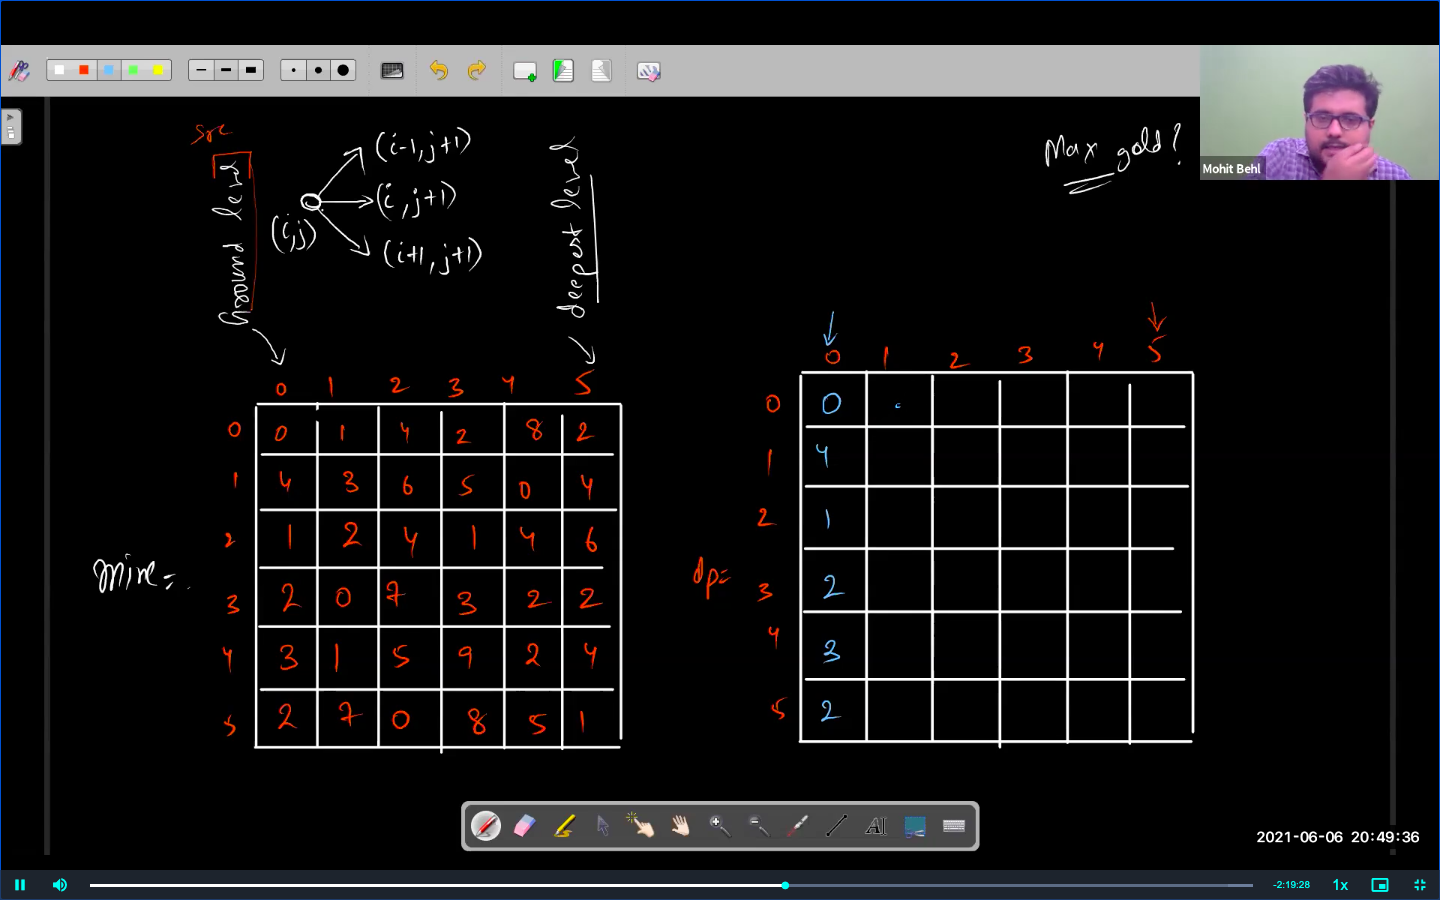 src
Ground level
(i,j)
(i-1, j+1)
(i, j+1)
(i+1, j+1)
deepest level
Max gold?
Mohit Behl
0 1 2 3 4 5
0 0 1 4 2 8 2
1 4 3 6 5 0 4
2 1 2 4 1 4 6
mine =
3 2 0 7 3 2 2
4 3 1 5 9 2 4
5 2 7 0 8 5 1
0 1 2 3 4 5
0 0
1 4
2 1
dp=
3 2
4 3
5 2
AI
2021-06-06 20:49:36
-2:19:28
1x